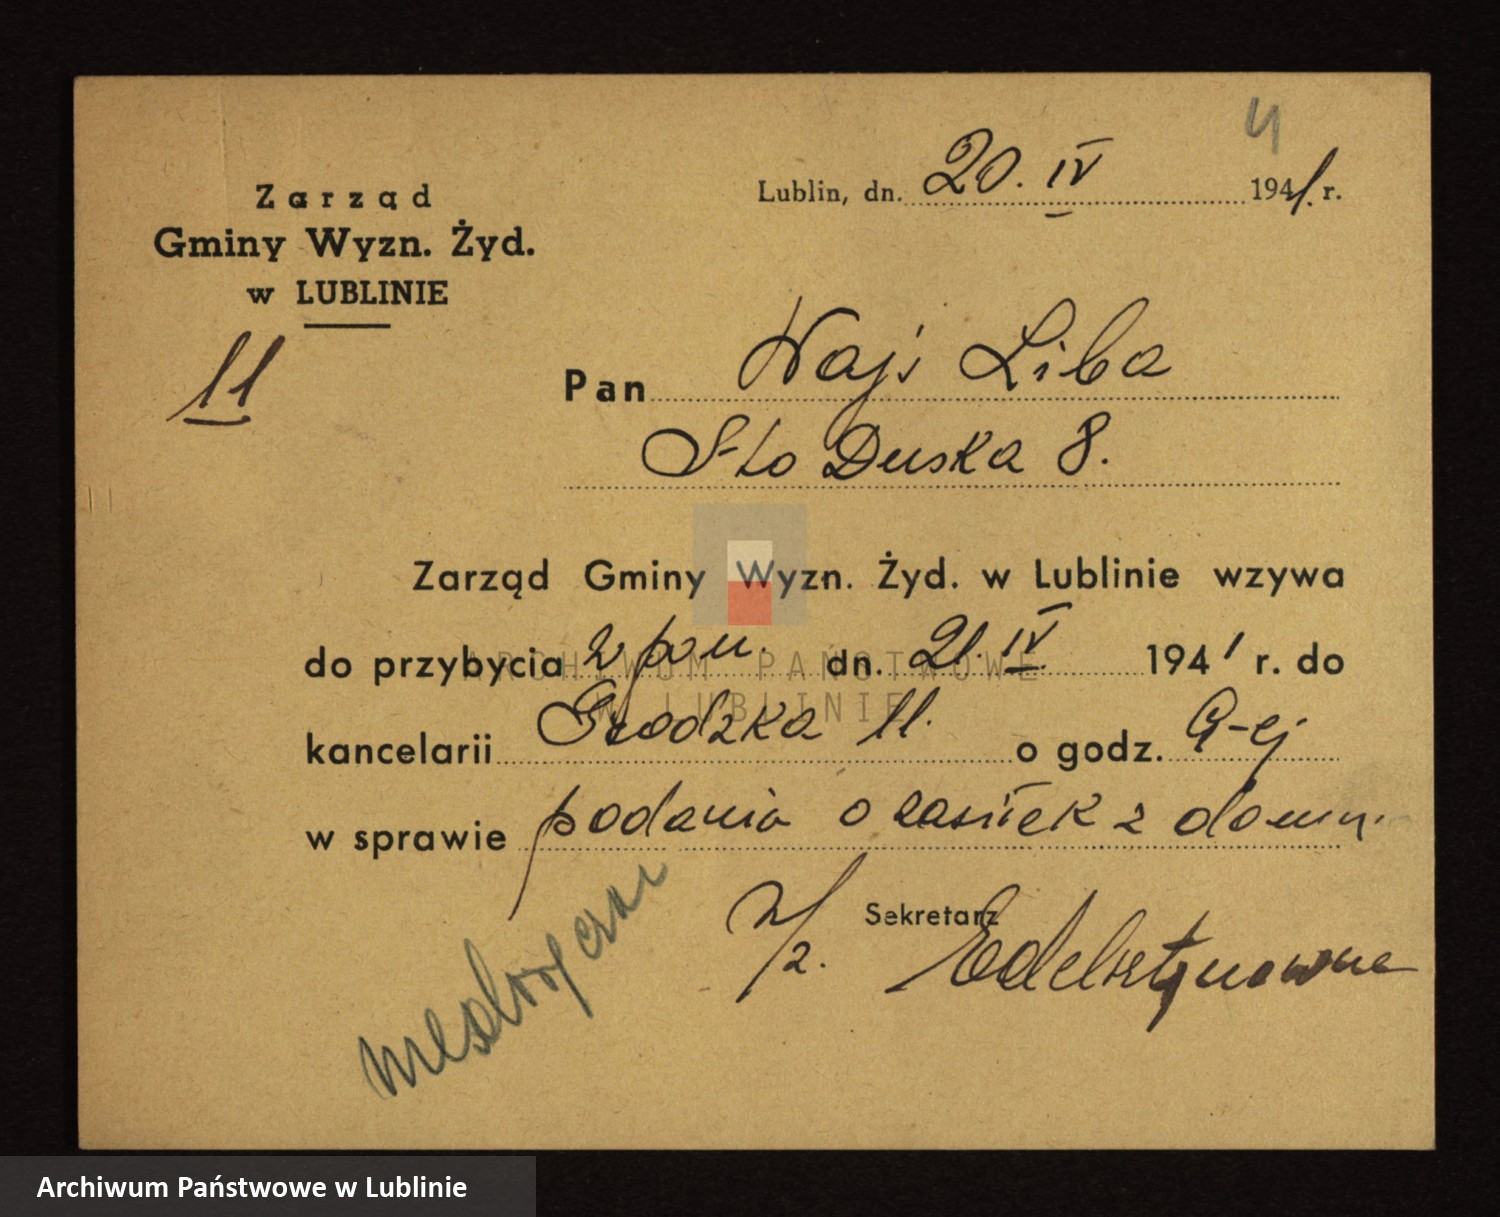 4
Lublin, dn. 20. IV 1941. r.
Zarząd
Gminy Wyzn. Żyd.
w LUBLINIE
11
Pan Wajs Liba
S-to Duska 8.
Zarząd Gminy Wyzn. Żyd. w Lublinie wzywa
do przybycia w pon. dn. 21. IV 1941 r. do
ARCHIWUM PAŃSTWOWE
W LUBLINIE
kancelarii Grodzka 11. o godz. 9-ej
w sprawie podania o zasiłek z
Sekretarz
Archiwum Państwowe w Lublinie